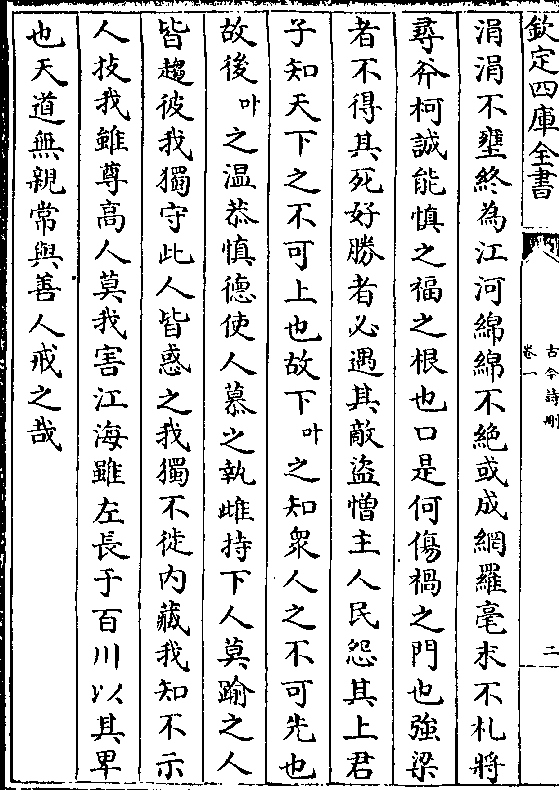 欽定四庫全書
古今詩刪
卷一
二
涓涓不壅終為江河綿綿不絶或成網羅毫末不札將
尋斧柯誠能慎之福之根也口是何傷禍之門也強梁
者不得其死好勝者必遇其敵盜憎主人民怨其上君
子知天下之不可上也故下叶之知衆人之不可先也
故後叶之温恭慎德使人慕之執雌持下人莫踰之人
皆趨彼我獨守此人皆惑之我獨不徙内藏我知不示
人技我雖尊高人莫我害江海雖左長于百川以其卑
也天道無親常與善人戒之哉